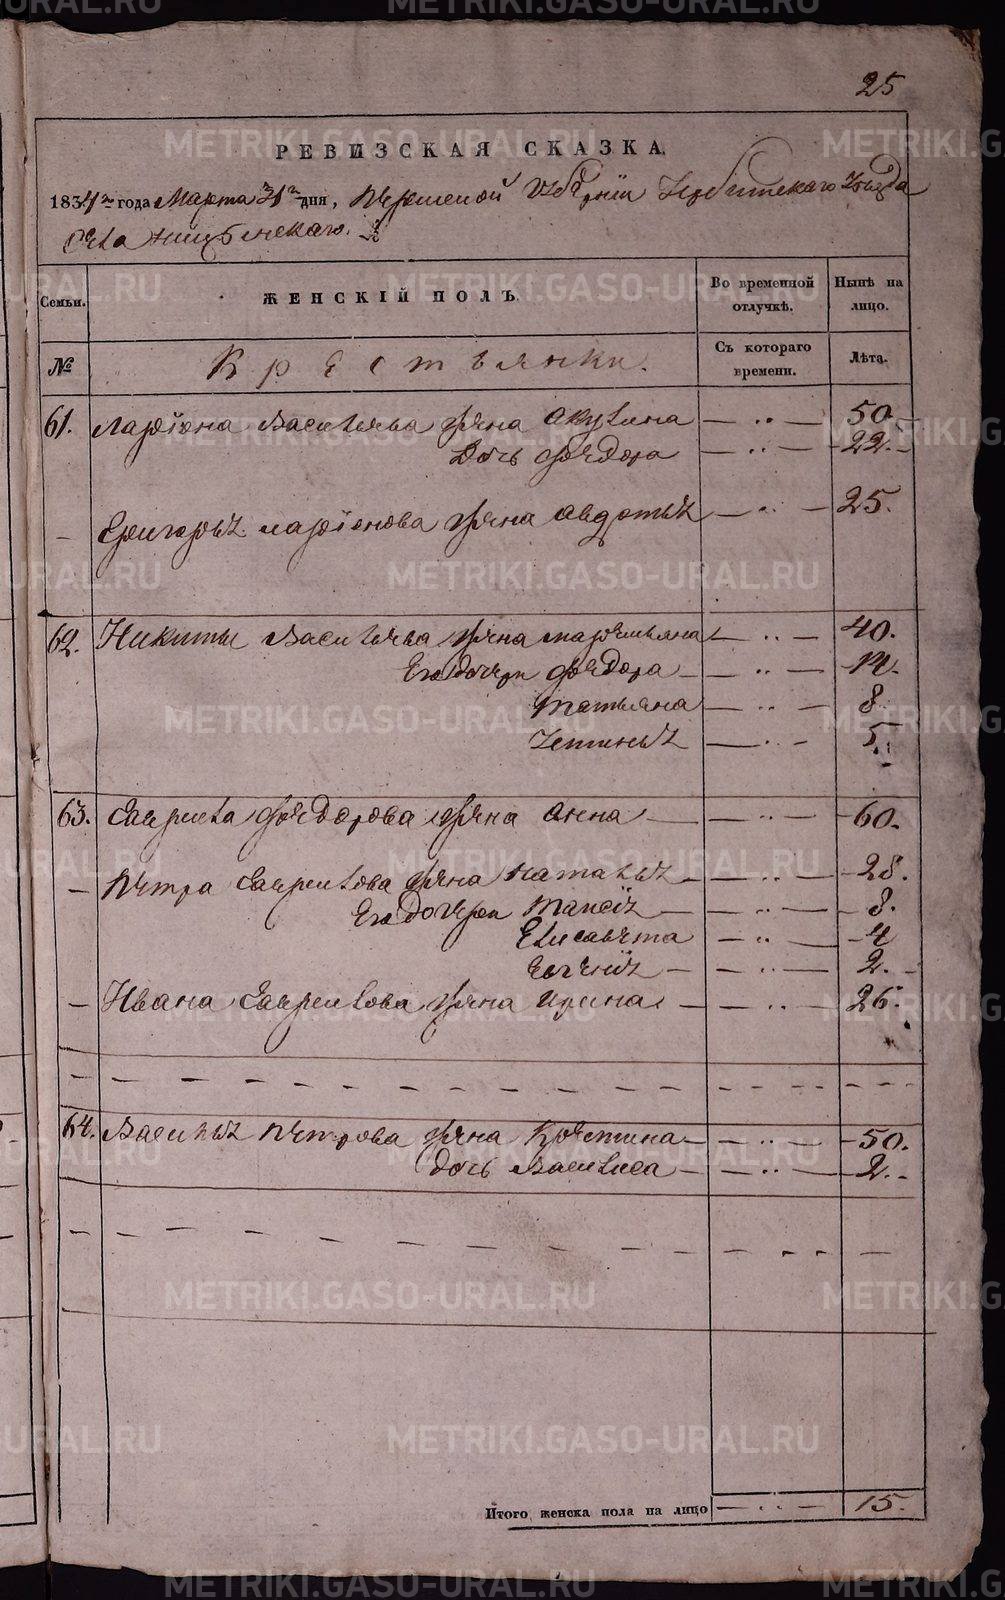 25
РЕВИЗСКАЯ СКАЗКА.
1834го года Марта 31го дня, Пермской Губѣрніи Ирбитскаго Уѣзда
Села
Семьи. ЖЕНСКІЙ ПОЛЪ. Во временной отлучкѣ. Нынѣ на лицо.
№ Крестьянки. Съ котораго времени. Лѣта.
61. Ларіона Васильева жена Акулина — „ — 50.
Дочь Федора — „ — 22.
— Григорья Ларіонова жена Авдотья — „ — 25.
62. Никиты Васильева жена Маремьяна — „ — 40.
Его дочери Федора — „ — 14.
Татьяна — „ — 8.
Устинья — „ — 5.
63. Гаврила Федорова жена Анна — „ — 60.
— Петра Гаврилова жена Наталья — „ — 28.
Его дочери Таисія — „ — 8.
Елисавета — „ — 4
Евгенія — „ — 2.
— Ивана Гаврилова жена Ирина — „ — 26.
64. Василья Петрова жена Крестина — „ — 50.
Дочь Василиса — „ — 2.
Итого женска пола на лицо — „ — 15.
METRIKI.GASO-URAL.RU